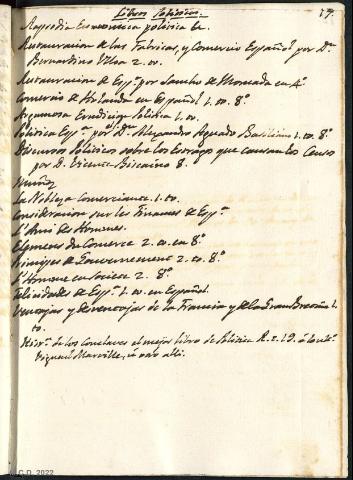 Libros Politicos.
17.
Rapsodia Economica politica &c.
Restauracion de las Fabricas, y Comercio Español por Dn.
Bernardino Ulloa 2. to.
Restauracion de Espª. por Sancho de Moncada en 4º
Comercio de Holanda en Español 1. to. 8º.
Politica Españ por Dr. Alexandro Aguado Basilio 1. to. 8º
Discursos Politicos sobre los Estragos que causan los Censos
por D. Vicente Biscaino 8.
Muñoz
La Nobleza Comerciante. 1. to.
Consideration sur les Finances de Espª.
L'Ami des Hommes.
Elemens du Comerce 2. to. en 8º.
Principes de Gouvernement 2. to. en 8º.
L'Homme en Societe 2. 8º
Felicidades de Espª. 1. to. en Español.
Ventajas y Desventajas de la Francia y de la Gran Bretaña 1.
to.
Histª. de los Conclaves el mejor libro de Politica
Vigneul Marville,
C.D. 2022